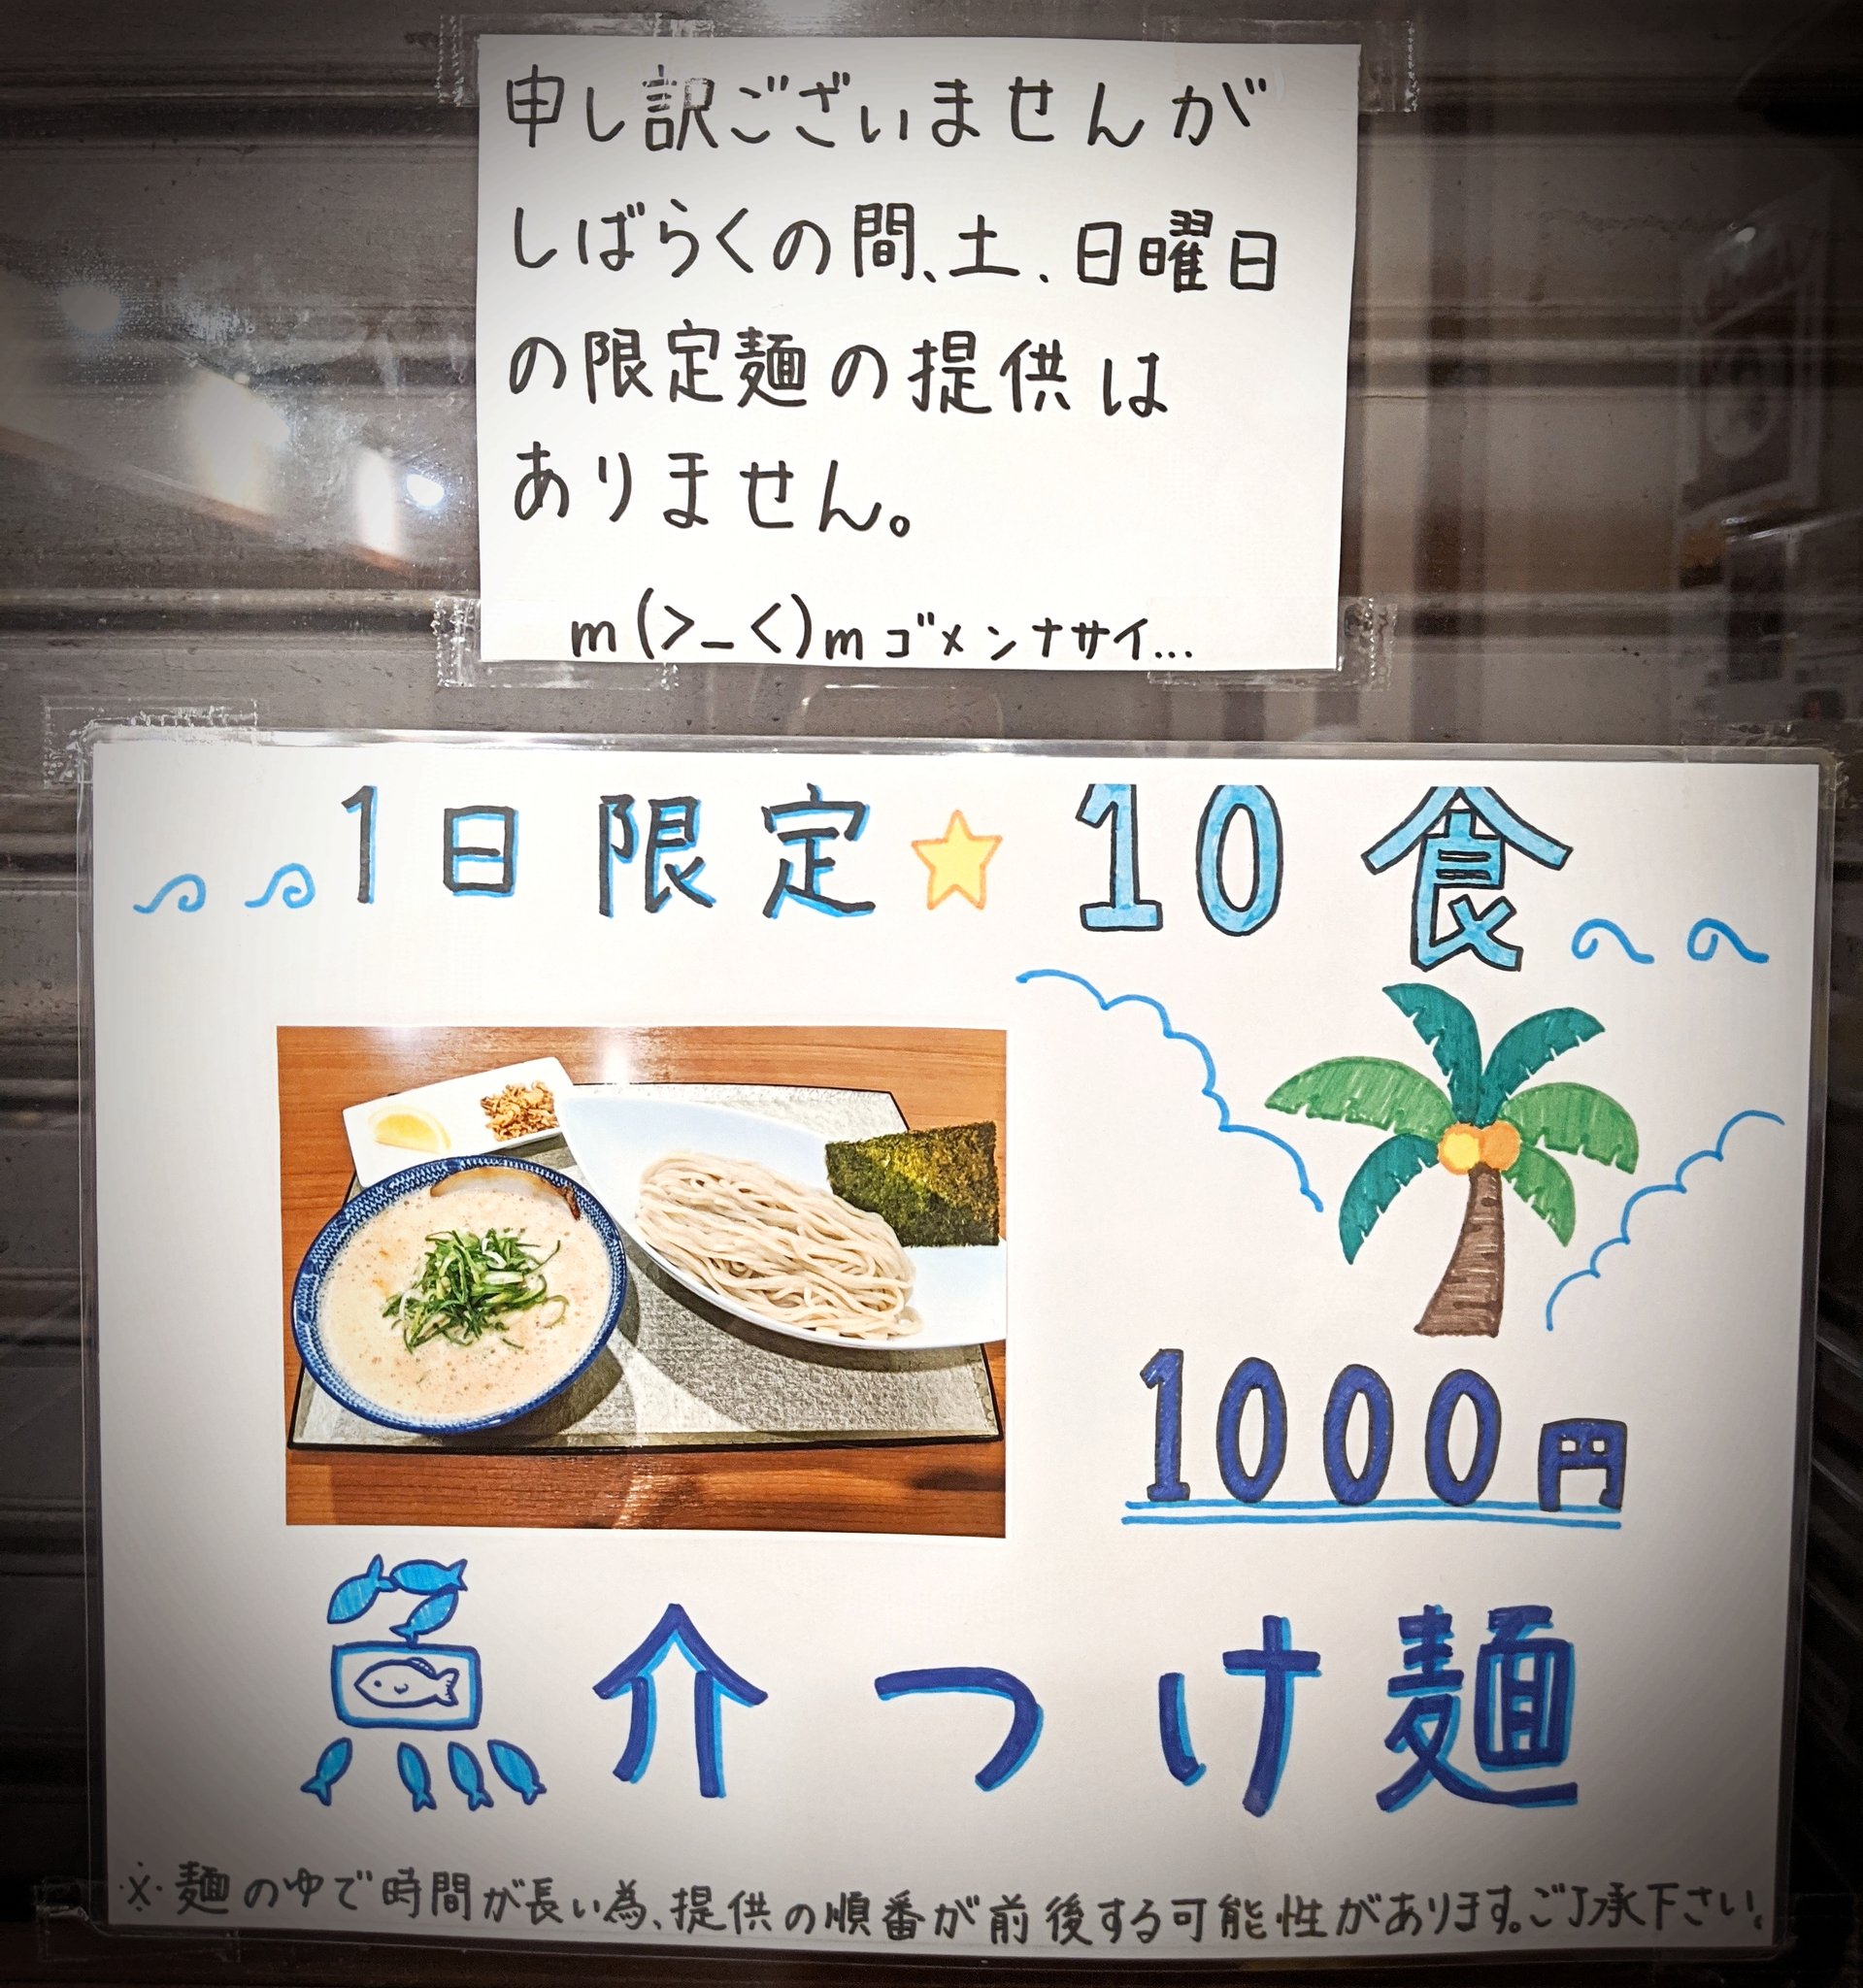 申し訳ございませんが
しばらくの間、土、日曜日
の限定麺の提供は
ありません。
m(>_<)mゴメンナサイ...
1日限定★10食
1000円
魚介つけ麺
※麺のゆで時間が長い為、提供の順番が前後する可能性があります。ご了承下さい。